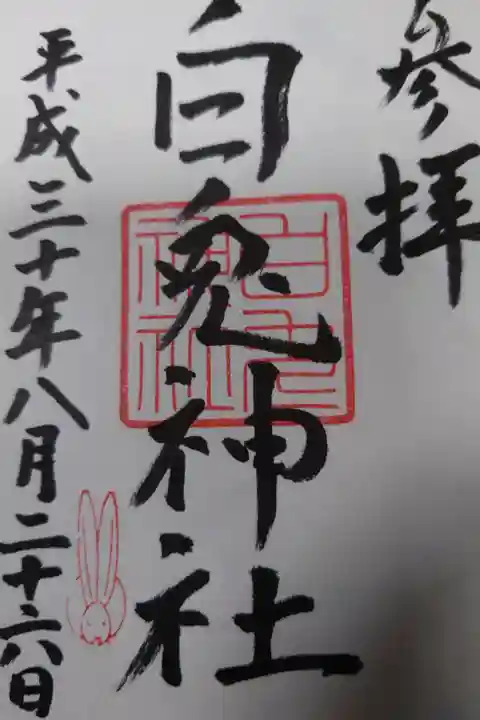 参拝
白兎神社
平成三十年八月二十六日
白兎
神社